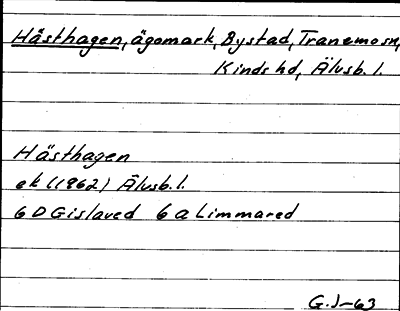 Hästhagen, ägomark, Bystad, Tranemo sn,
Kinds hd, Älvsb. l.
Hästhagen
ek (1962) Älvsb. l.
6 D Gislaved 6 a Limmared
G.J-63